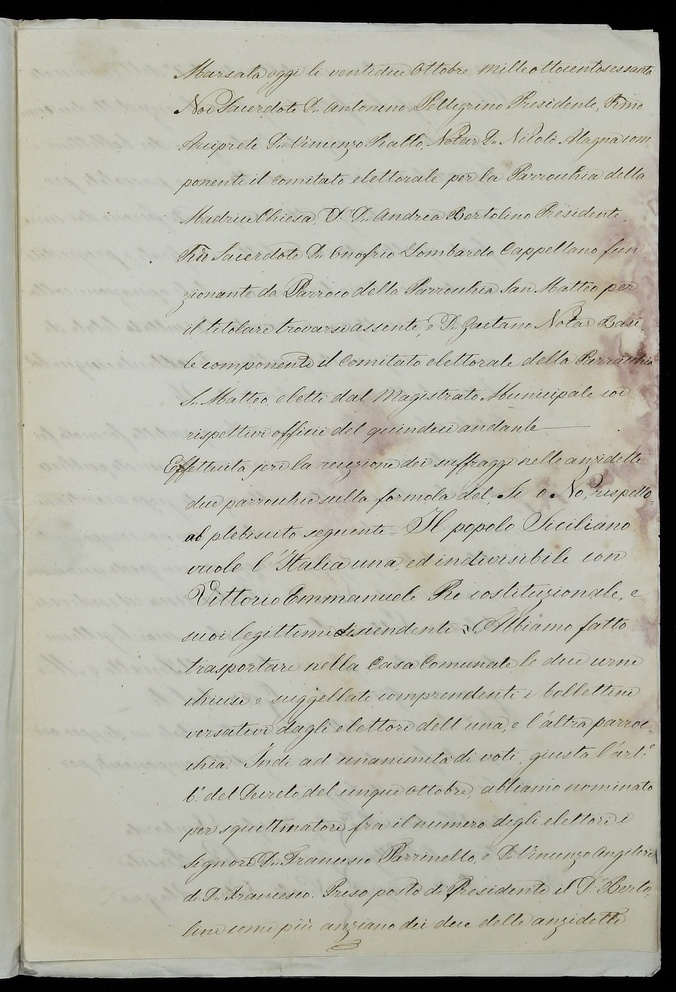 Marsala oggi le ventidue Ottobre milleottocentosessanta
Noi Sacerdote D. Antonino Pellegrino Presidente, R.mo
Arciprete D. Vincenzo Rallo, Notar D. Nicolò Alagna com
ponenti il comitato elettorale per la Parrocchia della
Madrice Chiesa, D. D. Andrea Bertolino Presidente
Sacerdote D. Onofrio Lombardo Cappellano fun
zionante da Parroco della Parrocchia San Matteo per
il titolare trovarsi assente, e D. Gaetano Notar Basi
le componenti il Comitato elettorale della Parrocchia
S. Matteo, eletti dal Magistrato Municipale coi
rispettivi officii del quindici andante
Effettuita jeri la recezione dei suffraggi nelle anzidette
due parrocchie sulla formola del Si o No, rispetto
al plebiscito seguente - Il popolo Siciliano
vuole l'Italia una, ed indivisibile con
Vittorio Emmanuele Re costituzionale, e
suoi legittimi discendenti Abbiamo fatto
trasportare nella Casa Comunale le due urne
chiuse e suggellate comprendenti i bollettini
versativi dagli elettori dell'una, e l'altra parroc
chia. Indi ad unanimità di voti, giusta l'art.o
6.o del Decreto del cinque ottobre, abbiamo nominato
per squittinatori fra il numero degli elettori i
signori D. Francesco Parrinello, e D. Vincenzo Angileri
di D. Francesco. Preso posto di Presidente il D. Berto
lino come più anziano dei due delle anzidetti